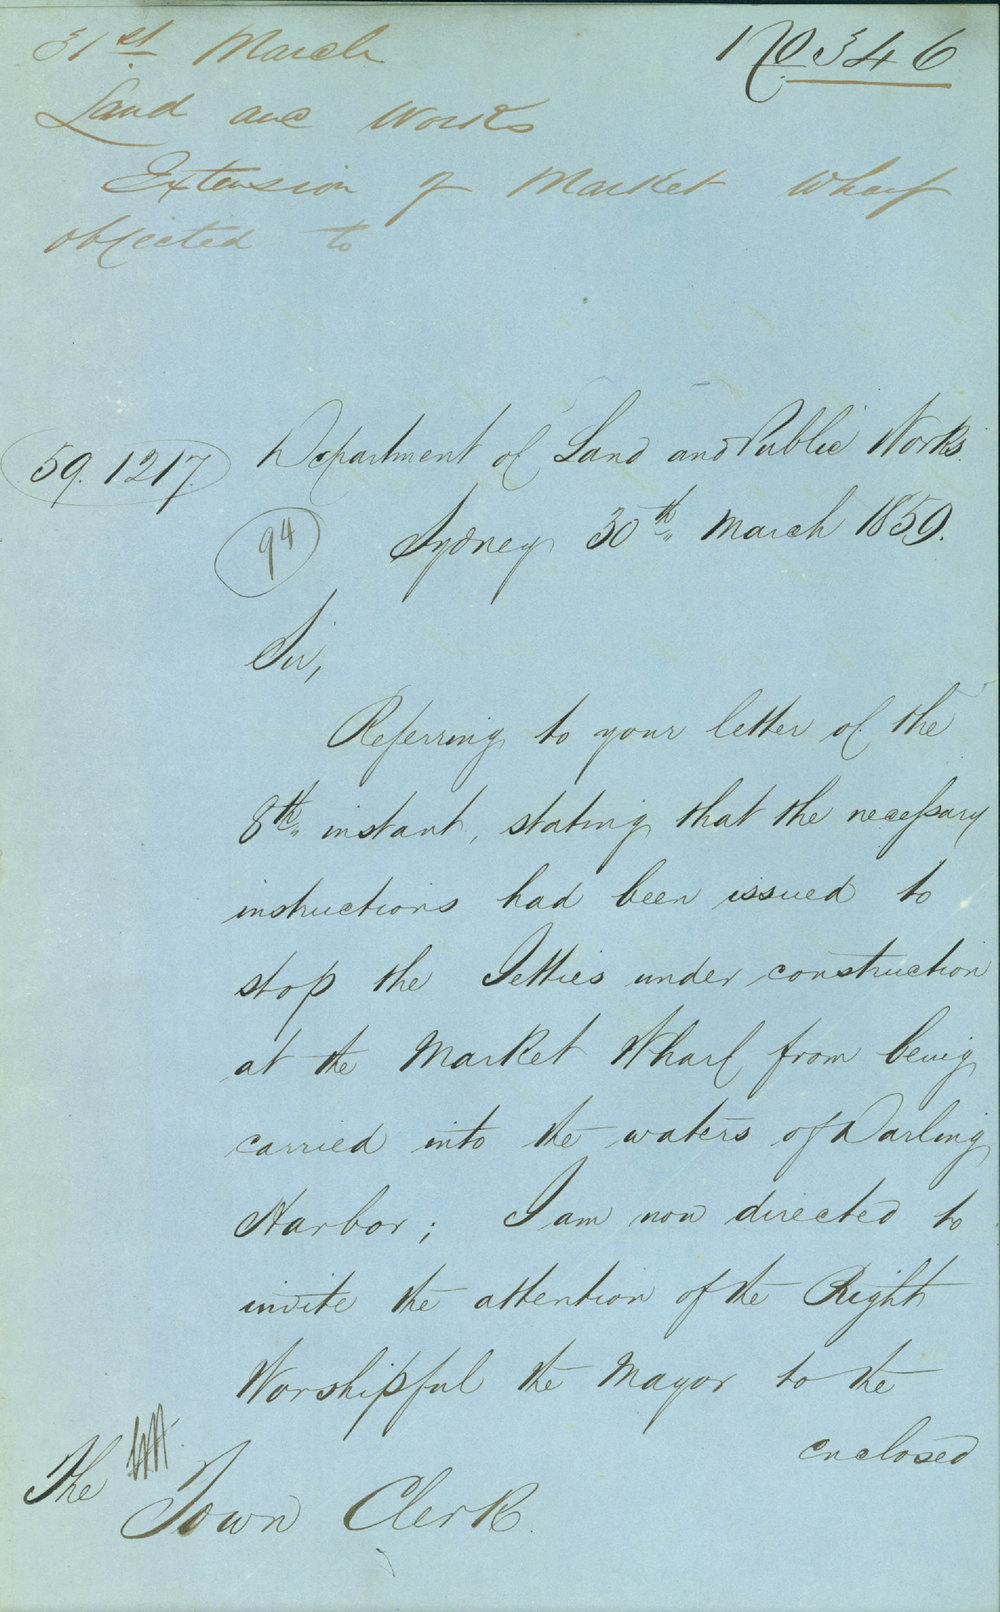 31st March
No 346
Land and Works
Extension of Market Wharf
objected to
59.1217.
Department of Land and Public Works.
94
Sydney 30th March 1859.
Sir,
Referring to your letter of the
8th instant, stating that the necessary
instructions had been issued to
stop the Jetties under construction
at the Market Wharf from being
carried into the waters of Darling
Harbor; I am now directed to
invite the attention of the Right
Worshipful the Mayor to the
enclosed
The
Town Clerk.